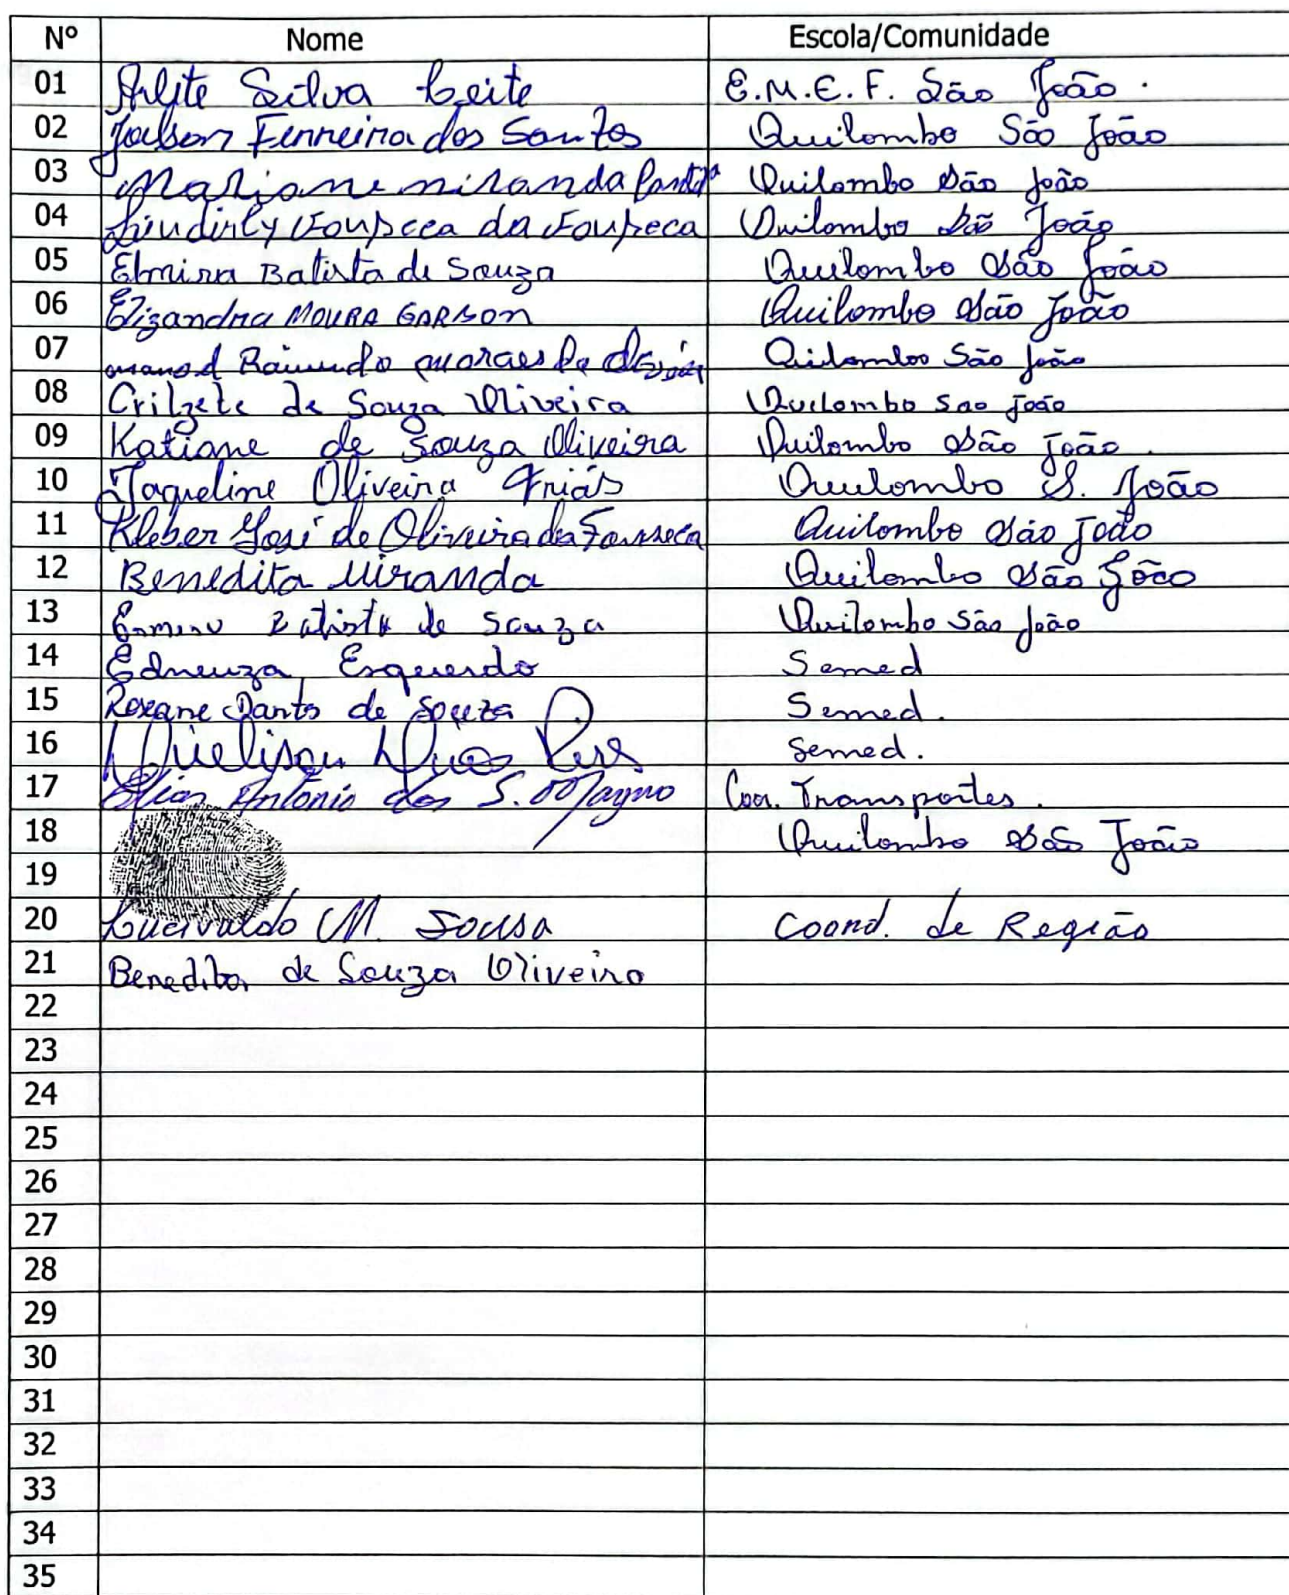 Nº Nome Escola/Comunidade
01 Arlete Silva Leite E.M.E.F. São João.
02 Joelson Ferreira dos Santos Quilombo São João
03 Mariane miranda Quilombo São João
04 Foupseca da Foupseca Quilombo São João
05 Elmira Batista de Souza Quilombo São João
06 Elizandra MOURA GARSON Quilombo São João
07 manoel Raimundo moraes Quilombo São João
08 Crilzete de Souza Oliveira Quilombo Sao João
09 Katiane de Souza Oliveira Quilombo São João.
10 Jaqueline Oliveira Friás Quilombo S. João
11 Kleber José de Oliveira da Fonseca Quilombo São João
12 Benedita Miranda Quilombo São João
13 Batista de Souza Quilombo São João
14 Edneuza Esquerdo Semed
15 Rosane Santos de Souza Semed.
16 Dias Semed.
17 Elias Antônio dos S. Magno Coor. Transportes.
18 Quilombo São João
19
20 Lucivaldo M. Sousa Coord. de Região
21 Benedita de Souza Oliveira
22
23
24
25
26
27
28
29
30
31
32
33
34
35